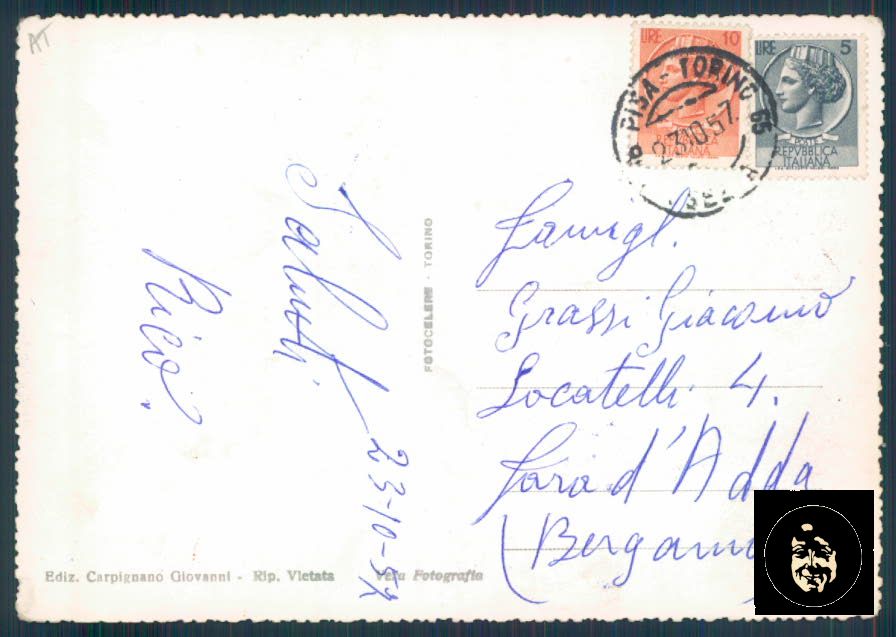 AT
LIRE 10
LIRE 5
PISA - TORINO 65
23 10 57
REPVBBLICA
ITALIANA
POSTE
REPVBBLICA
ITALIANA
Saluti
Rico.
23-10-57
FOTOCELERE - TORINO
Famigl.
Grassi Giacomo
Locatelli 4.
Fara d'Adda
(Bergamo
Ediz. Carpignano Giovanni - Rip. Vietata
Vera Fotografia